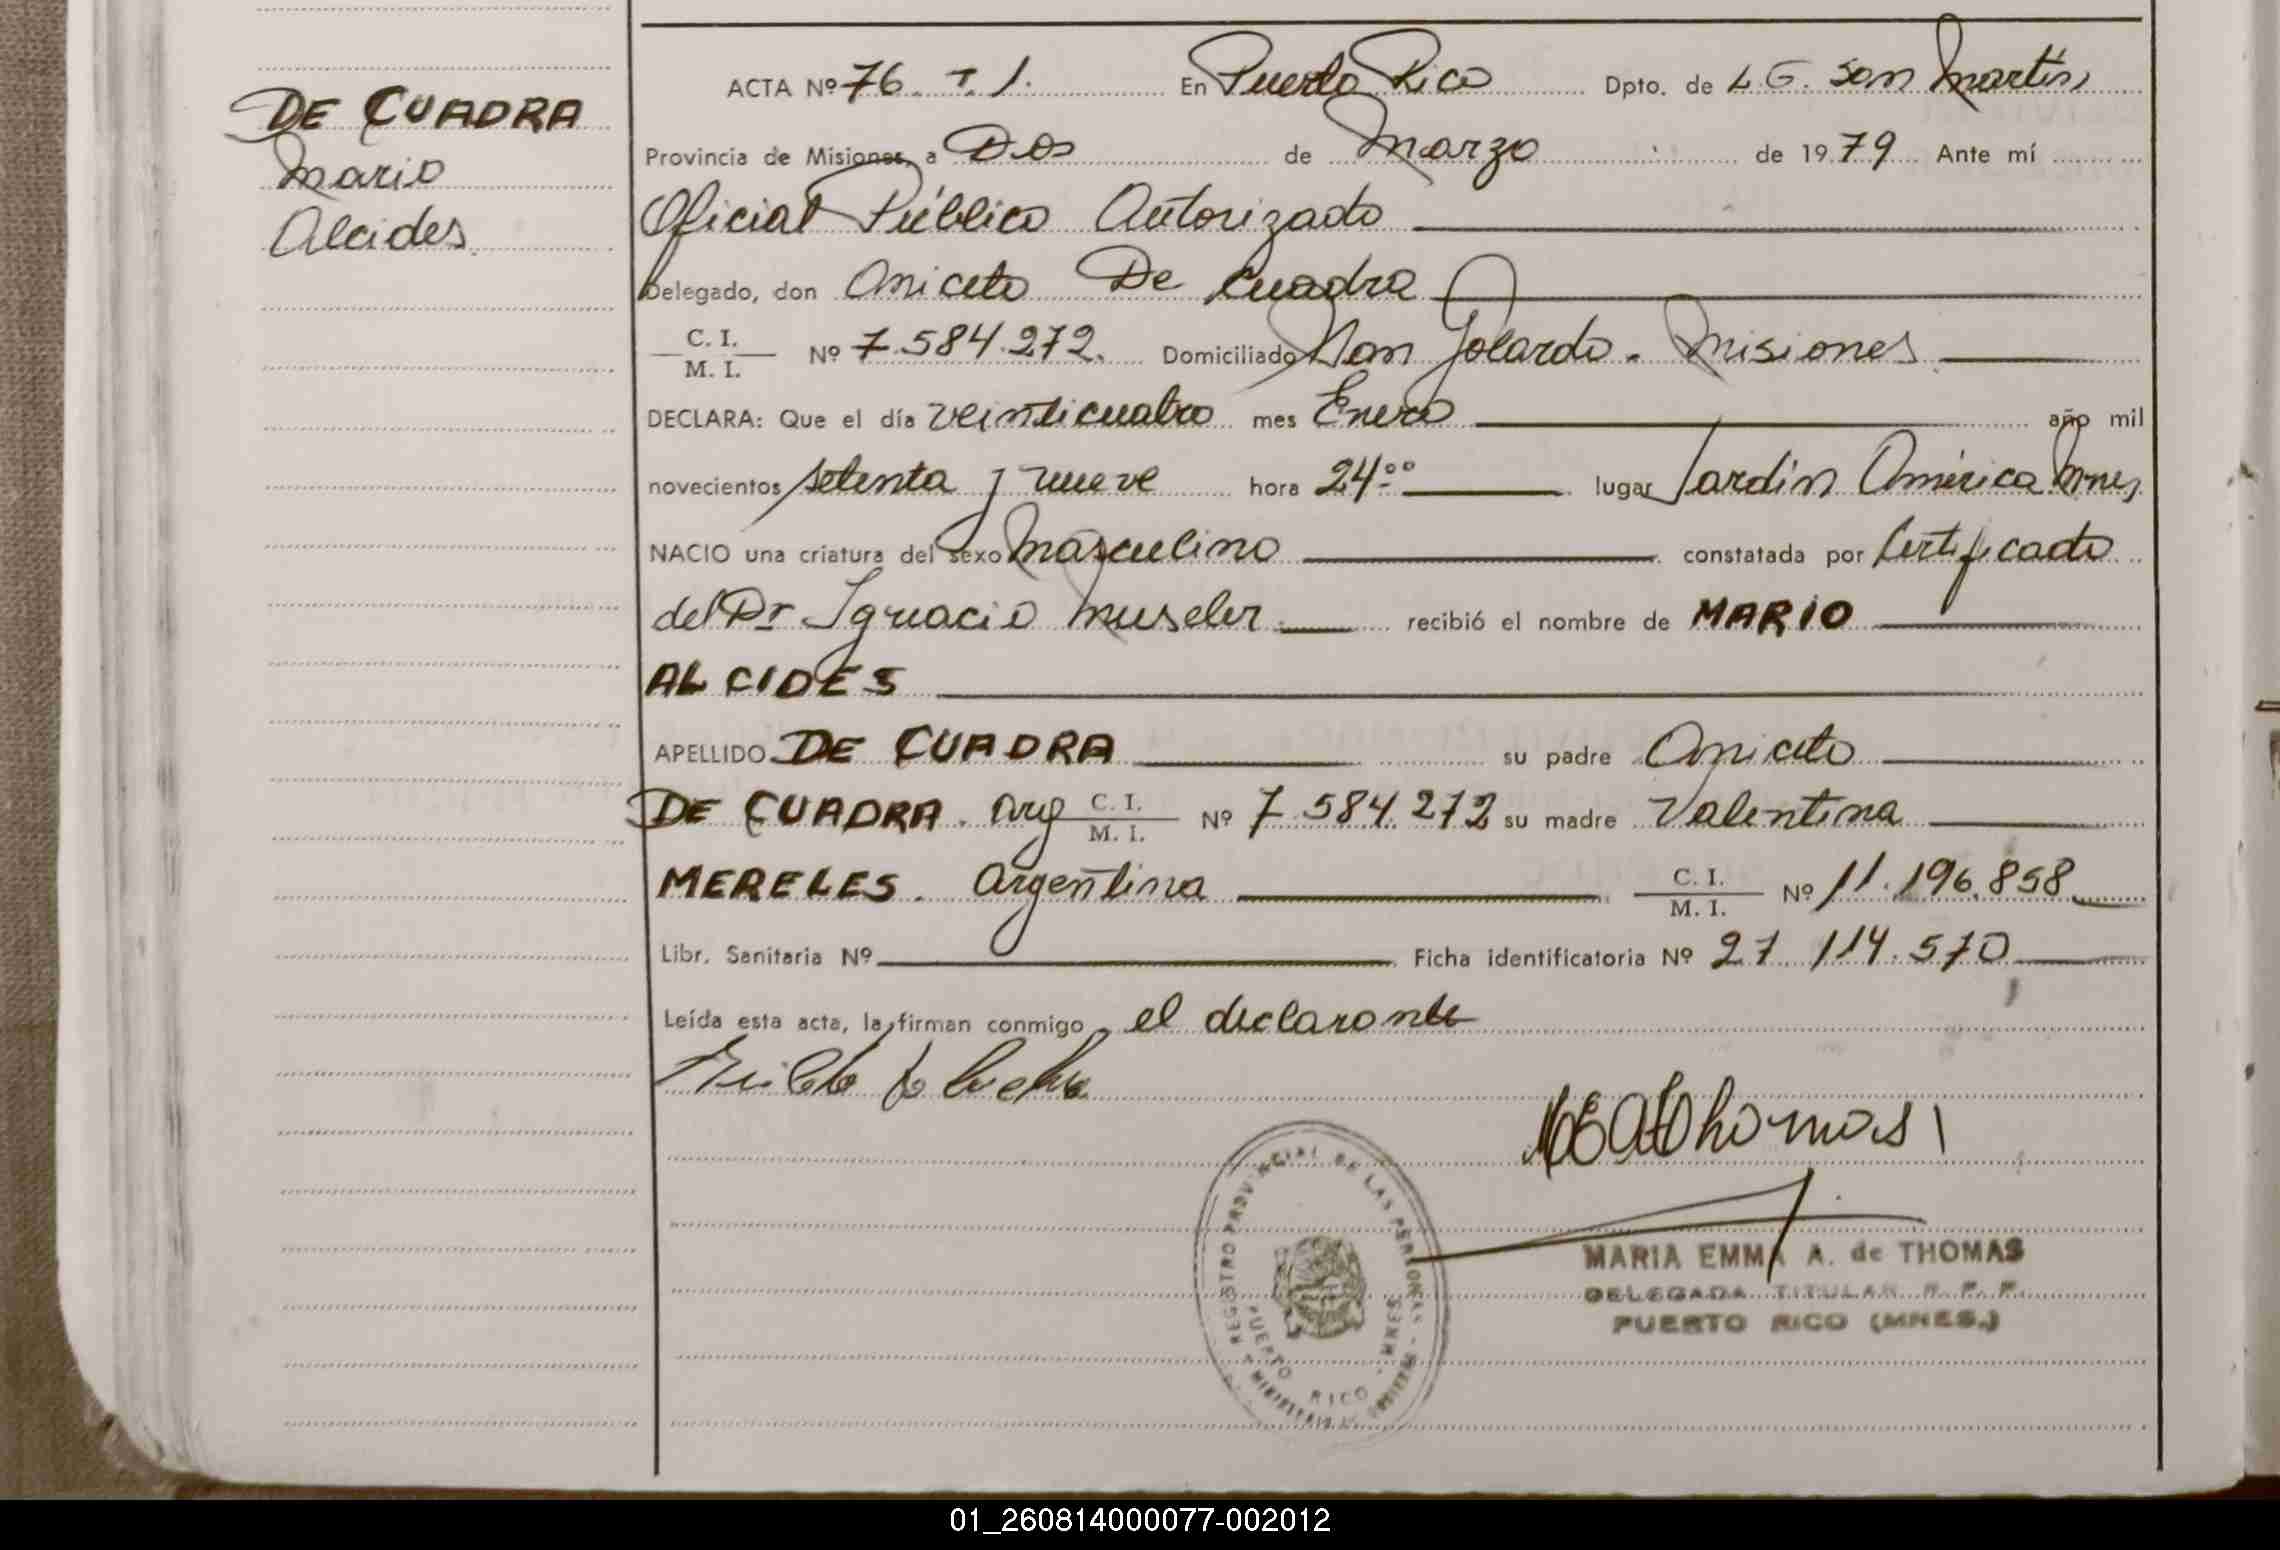 DE CUADRA
Mario
Alcides.
ACTA Nº 76. T. 1. En Puerto Rico Dpto. de L. G. San Martín
Provincia de Misiones, a Dos de Marzo de 1979 Ante mí
Oficial Público Autorizado
Delegado, don Aniceto De Cuadra
C. I. / M. I. Nº 7.584.272. Domiciliado Gdor. Misiones
DECLARA: Que el día veinticuatro mes Enero año mil
novecientos setenta y nueve hora 24:00 lugar Jardín América Mnes,
NACIO una criatura del sexo Masculino constatada por Certificado
del Dr. Ignacio Museler recibió el nombre de MARIO
ALCIDES
APELLIDO DE CUADRA su padre Aniceto
DE CUADRA. arg C. I. / M. I. Nº 7 584.272 su madre Valentina
MERELES. Argentina C. I. / M. I. Nº 11.196.858
Libr. Sanitaria Nº Ficha identificatoria Nº 27.114.570
Leída esta acta, la firman conmigo, el declarante
MARIA EMMA A. de THOMAS
DELEGADA TITULAR R. P. P.
PUERTO RICO (MNES.)
REGISTRO PROVINCIAL DE LAS PERSONAS
PUERTO RICO - MNES.
01_260814000077-002012